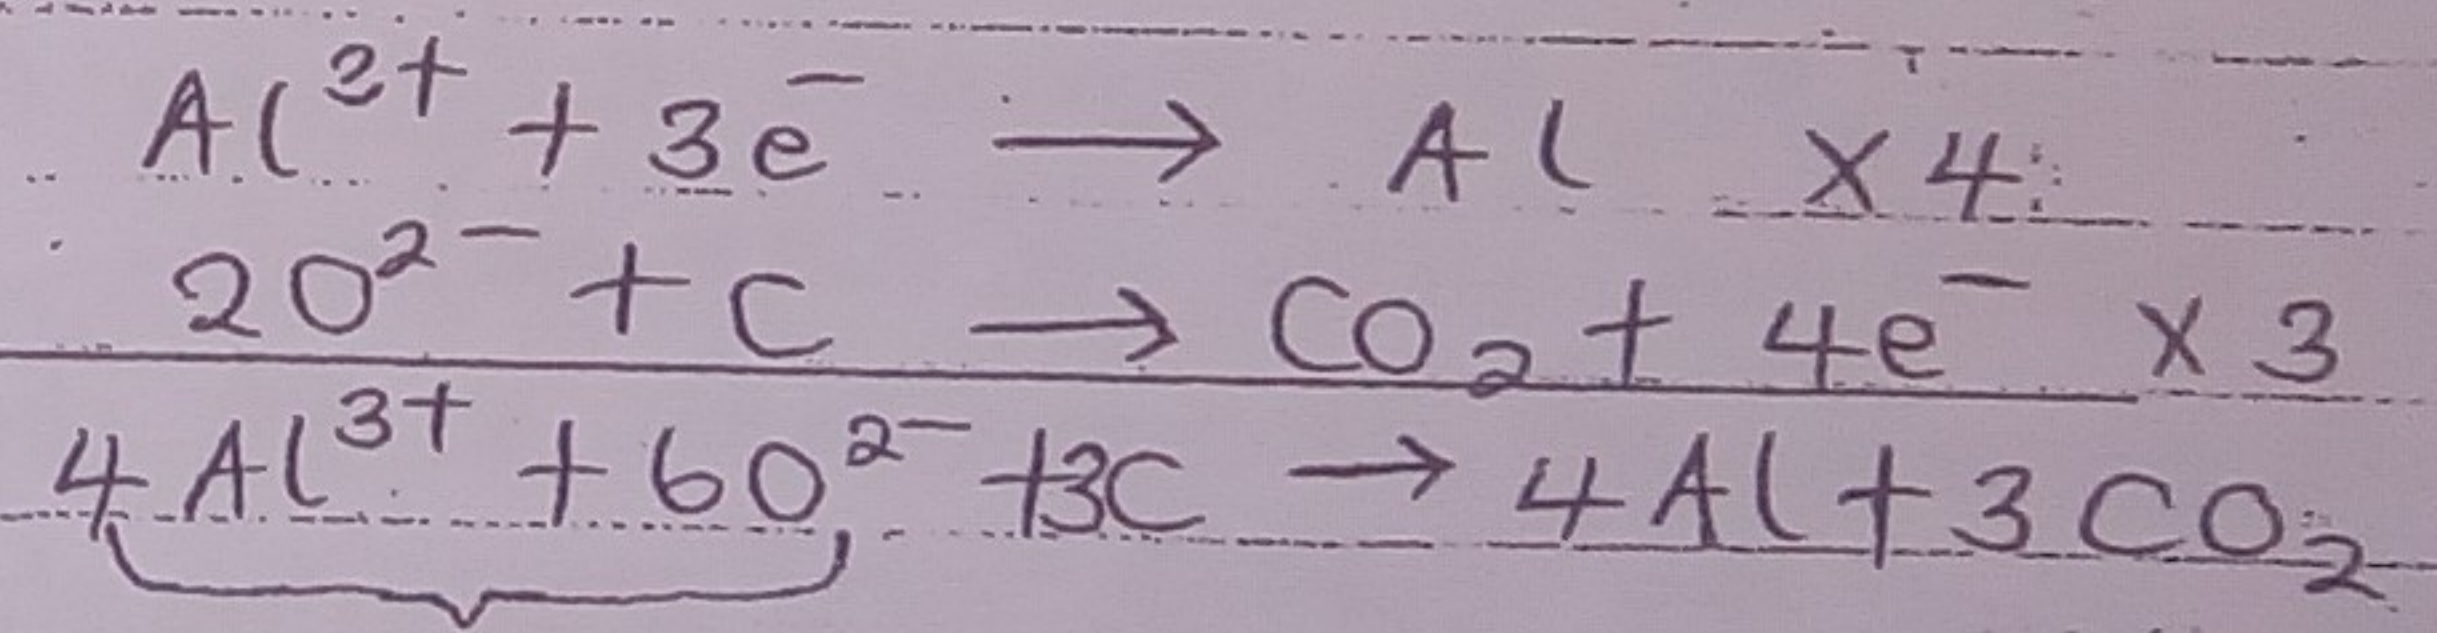 Al³⁺ + 3e⁻ → Al ×4
2O²⁻ + C → CO₂ + 4e⁻ ×3
4Al³⁺ + 6O²⁻ + 3C → 4Al + 3CO₂